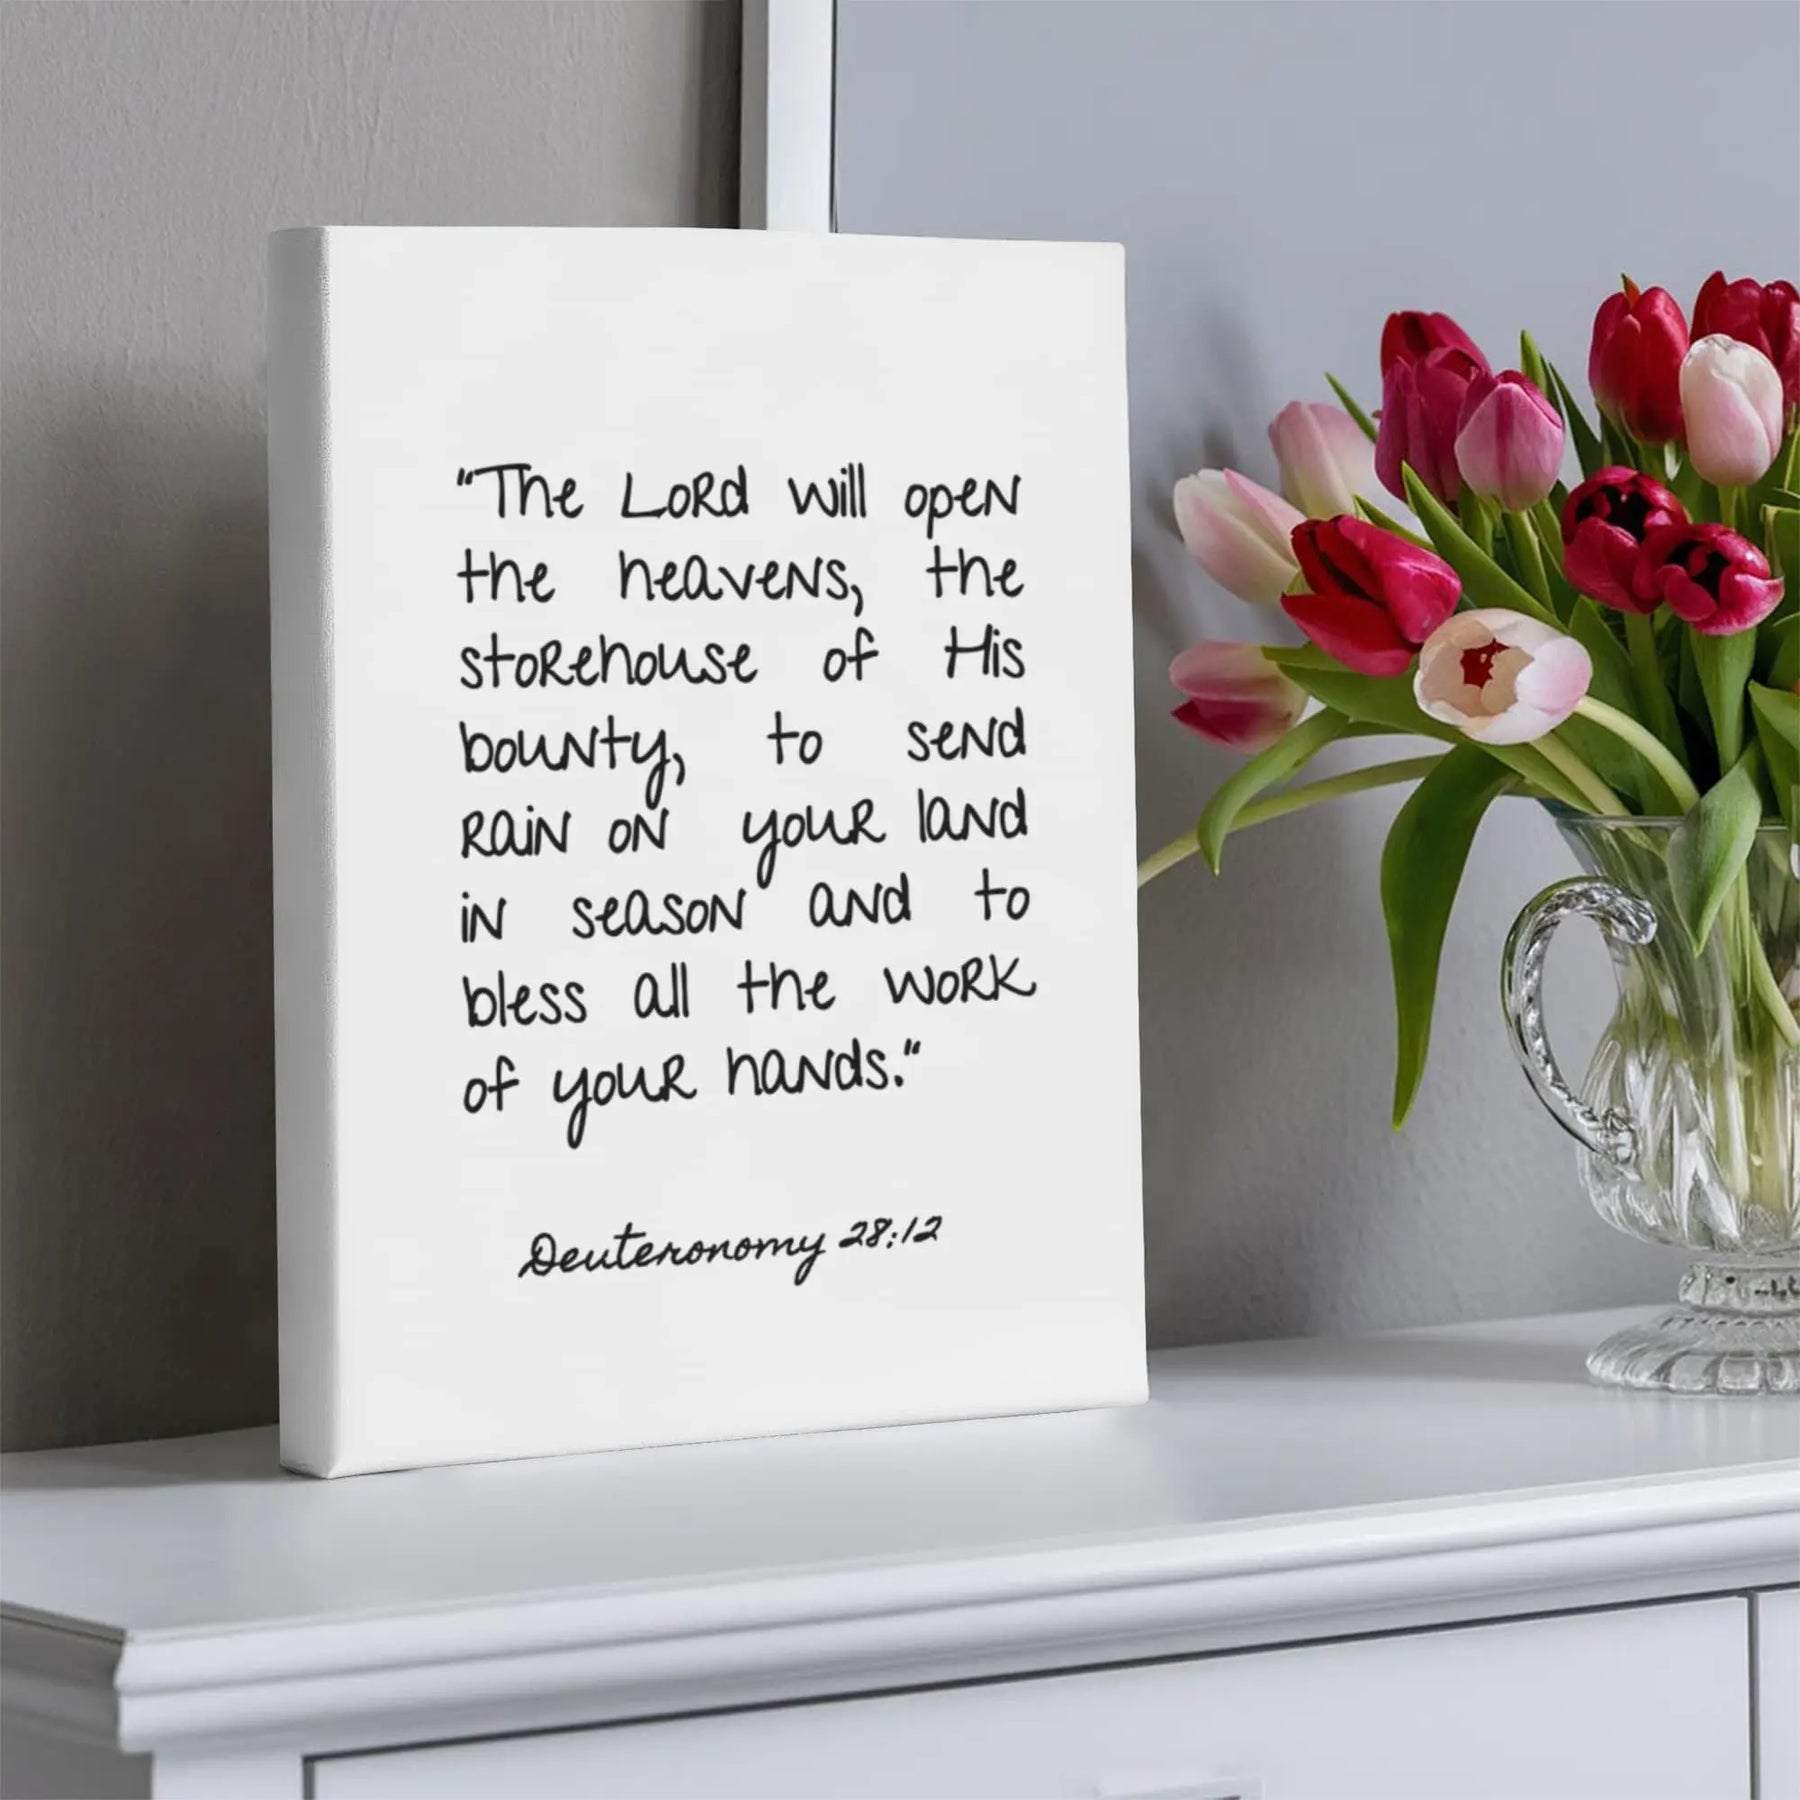 “The Lord will open
the heavens, the
storehouse of His
bounty, to send
rain on your land
in season and to
bless all the work
of your hands.“
Deuteronomy 28:12